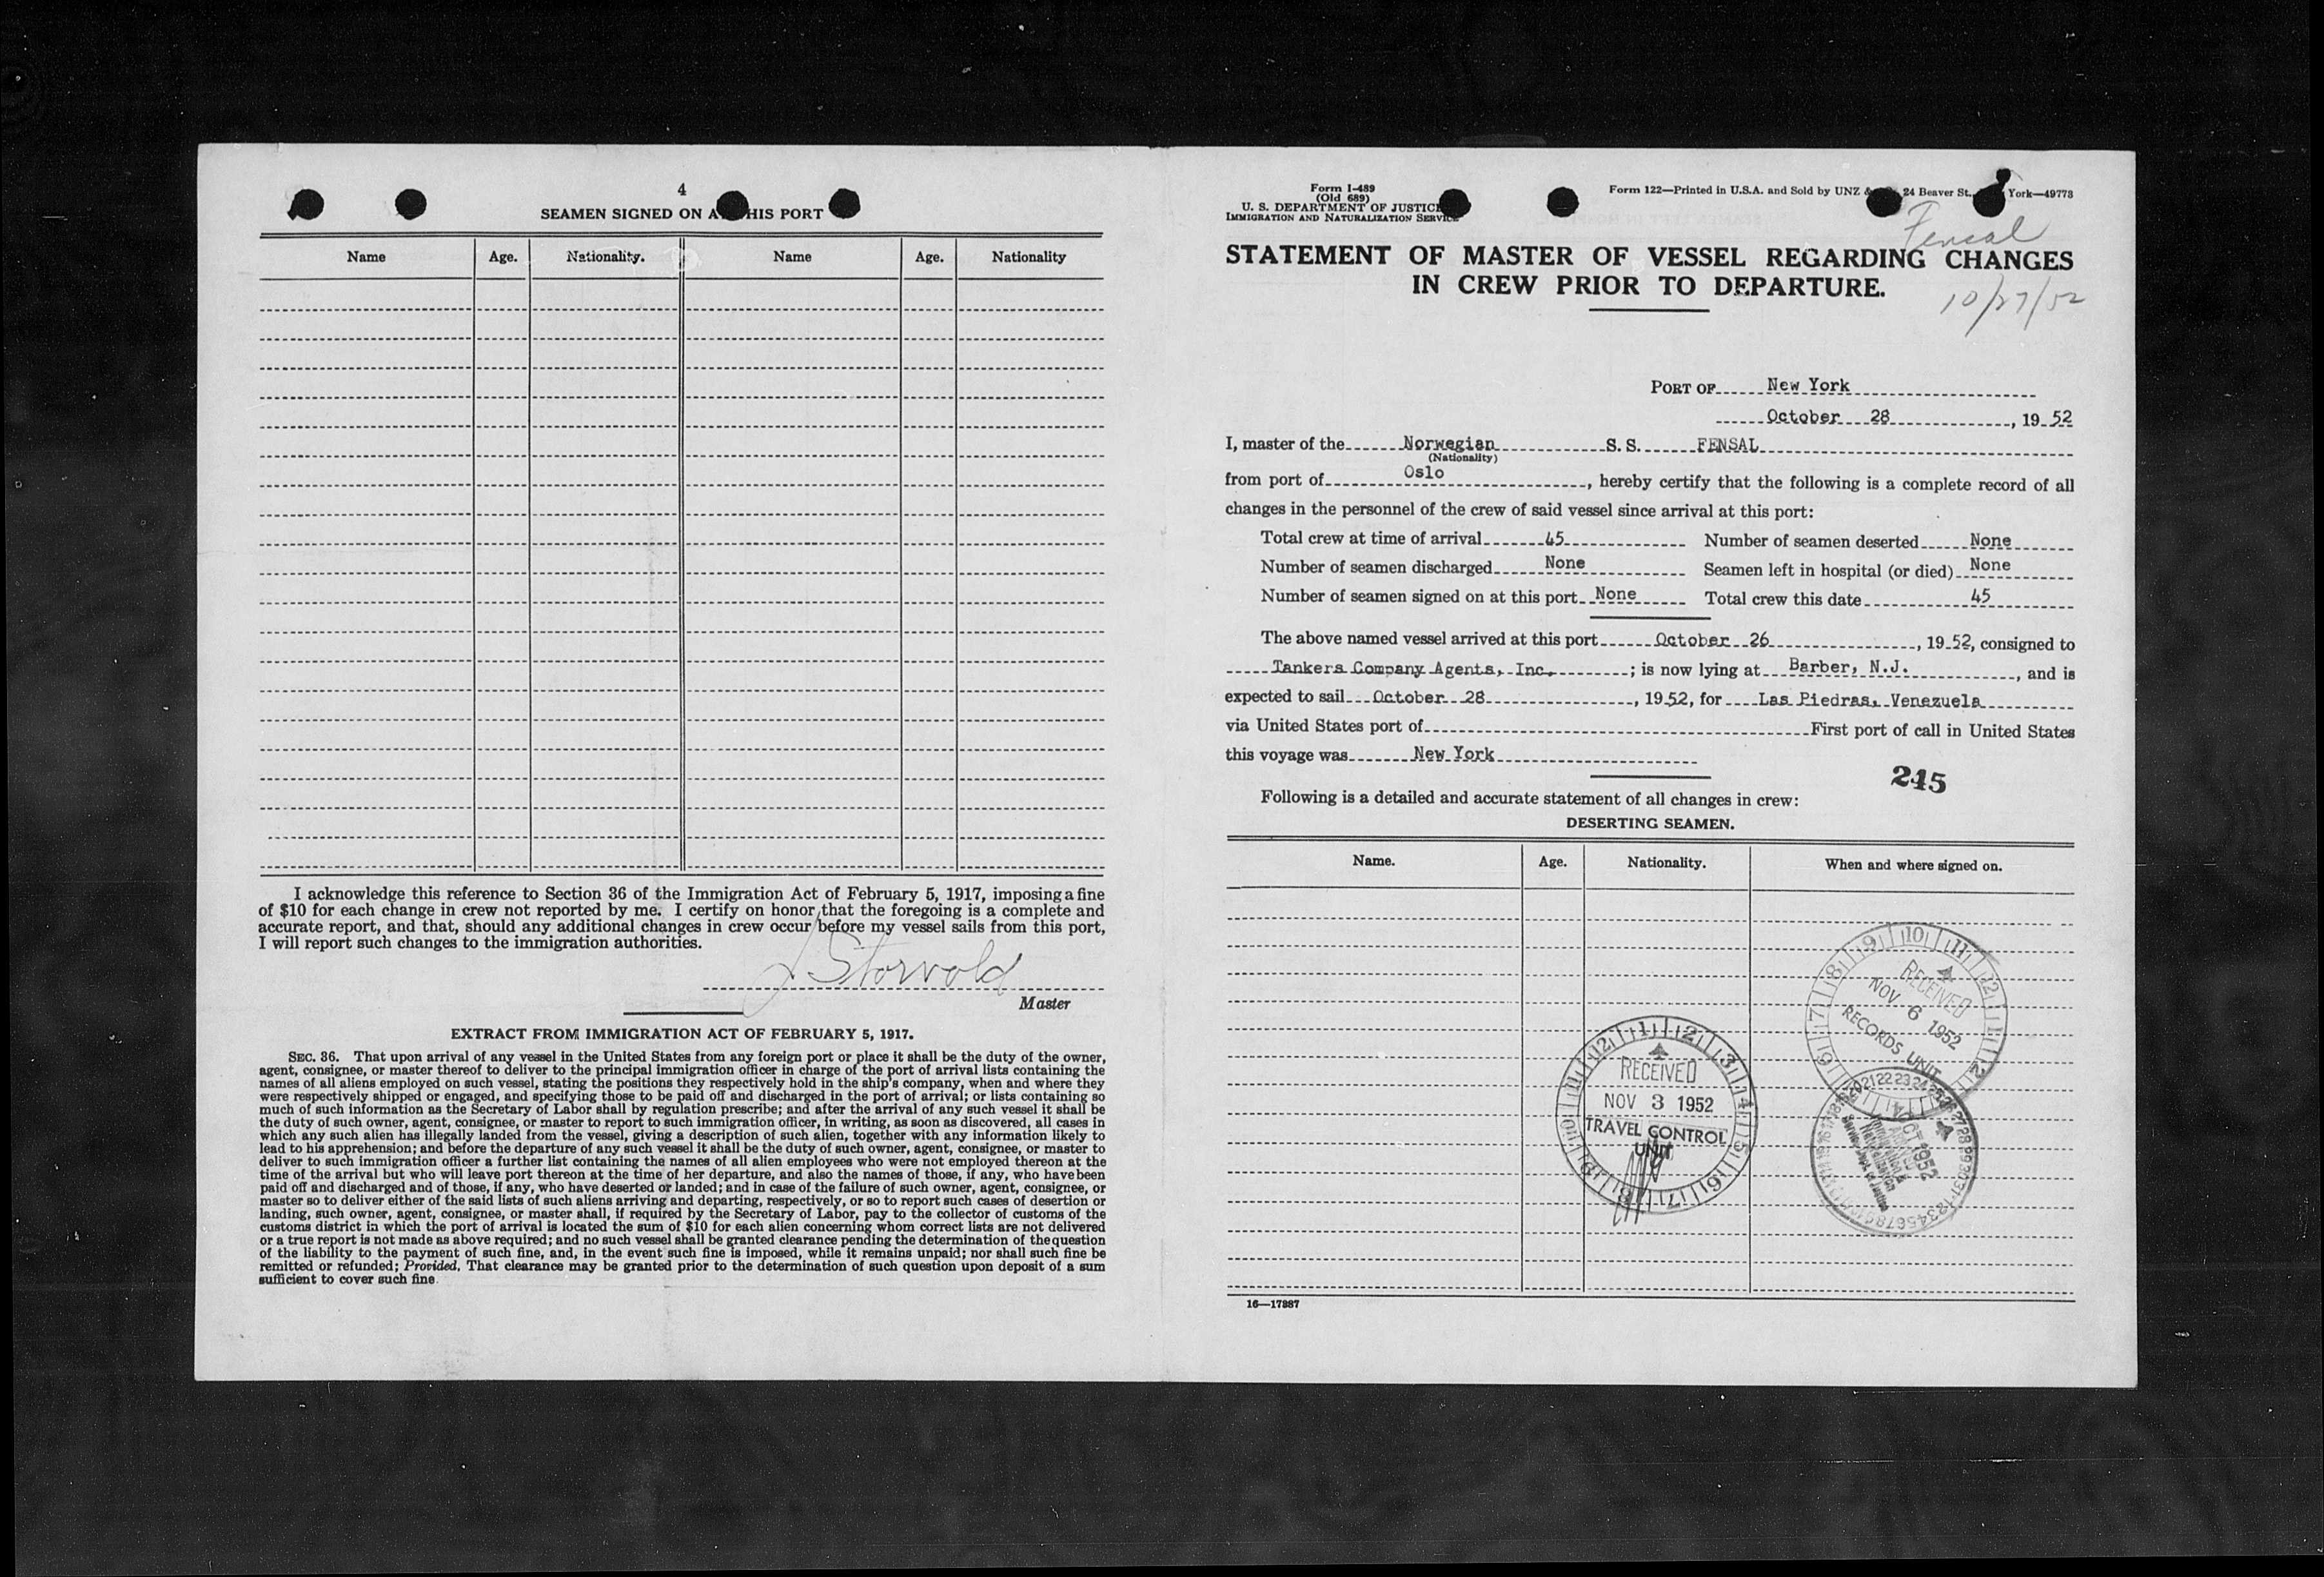 4
SEAMEN SIGNED ON A HIS PORT
Name Age. Nationality. Name Age. Nationality
I acknowledge this reference to Section 36 of the Immigration Act of February 5, 1917, imposing a fine
of $10 for each change in crew not reported by me. I certify on honor that the foregoing is a complete and
accurate report, and that, should any additional changes in crew occur before my vessel sails from this port,
I will report such changes to the immigration authorities.
J Storvold
Master
EXTRACT FROM IMMIGRATION ACT OF FEBRUARY 5, 1917.
SEC. 36. That upon arrival of any vessel in the United States from any foreign port or place it shall be the duty of the owner,
agent, consignee, or master thereof to deliver to the principal immigration officer in charge of the port of arrival lists containing the
names of all aliens employed on such vessel, stating the positions they respectively hold in the ship's company, when and where they
were respectively shipped or engaged, and specifying those to be paid off and discharged in the port of arrival; or lists containing so
much of such information as the Secretary of Labor shall by regulation prescribe; and after the arrival of any such vessel it shall be
the duty of such owner, agent, consignee, or master to report to such immigration officer, in writing, as soon as discovered, all cases in
which any such alien has illegally landed from the vessel, giving a description of such alien, together with any information likely to
lead to his apprehension; and before the departure of any such vessel it shall be the duty of such owner, agent, consignee, or master to
deliver to such immigration officer a further list containing the names of all alien employees who were not employed thereon at the
time of the arrival but who will leave port thereon at the time of her departure, and also the names of those, if any, who have been
paid off and discharged and of those, if any, who have deserted or landed; and in case of the failure of such owner, agent, consignee, or
master so to deliver either of the said lists of such aliens arriving and departing, respectively, or so to report such cases of desertion or
landing, such owner, agent, consignee, or master shall, if required by the Secretary of Labor, pay to the collector of customs of the
customs district in which the port of arrival is located the sum of $10 for each alien concerning whom correct lists are not delivered
or a true report is not made as above required; and no such vessel shall be granted clearance pending the determination of the question
of the liability to the payment of such fine, and, in the event such fine is imposed, while it remains unpaid; nor shall such fine be
remitted or refunded; Provided, That clearance may be granted prior to the determination of such question upon deposit of a sum
sufficient to cover such fine.
Form I-489
(Old 689)
U. S. DEPARTMENT OF JUSTICE
IMMIGRATION AND NATURALIZATION SERVICE
Form 122—Printed in U.S.A. and Sold by UNZ & 24 Beaver St., York—49773
Fensal
STATEMENT OF MASTER OF VESSEL REGARDING CHANGES
IN CREW PRIOR TO DEPARTURE.
10/27/52
PORT OF New York
October 28, 1952
I, master of the Norwegian S. S. FENSAL
(Nationality)
from port of Oslo, hereby certify that the following is a complete record of all
changes in the personnel of the crew of said vessel since arrival at this port:
Total crew at time of arrival 45 Number of seamen deserted None
Number of seamen discharged None Seamen left in hospital (or died) None
Number of seamen signed on at this port None Total crew this date 45
The above named vessel arrived at this port October 26, 1952, consigned to
Tankers Company Agents, Inc.; is now lying at Barber, N.J., and is
expected to sail October 28, 1952, for Las Piedras, Venezuela
via United States port of First port of call in United States
this voyage was New York
245
Following is a detailed and accurate statement of all changes in crew:
DESERTING SEAMEN.
Name. Age. Nationality. When and where signed on.
RECEIVED
NOV 6 1952
RECORDS UNIT
RECEIVED
NOV 3 1952
TRAVEL CONTROL
UNIT
OCT 1952
16—17887